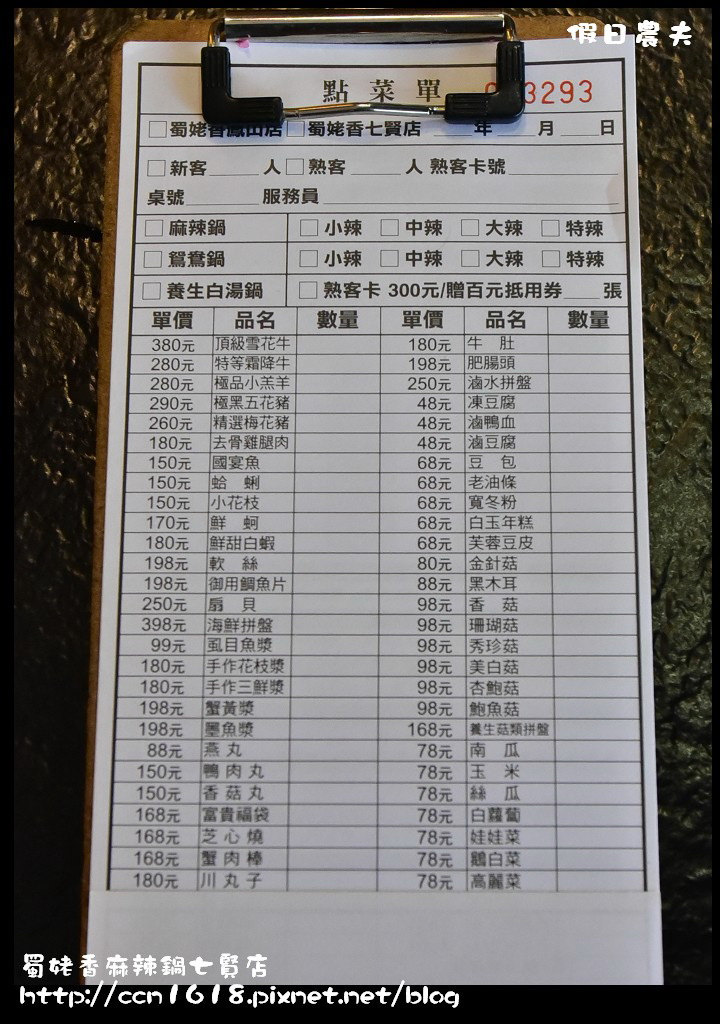 假日農夫
點菜單 3293
蜀姥香鳳山店 蜀姥香七賢店 年 月 日
新客 人 熟客 人 熟客卡號
桌號 服務員
麻辣鍋 小辣 中辣 大辣 特辣
鴛鴦鍋 小辣 中辣 大辣 特辣
養生白湯鍋 熟客卡 300元/贈百元抵用券 張
單價 品名 數量 單價 品名 數量
380元 頂級雪花牛 180元 牛 肚
280元 特等霜降牛 198元 肥腸頭
280元 極品小羔羊 250元 滷水拼盤
290元 極黑五花豬 48元 凍豆腐
260元 精選梅花豬 48元 滷鴨血
180元 去骨雞腿肉 48元 滷豆腐
150元 國宴魚 68元 豆 包
150元 蛤 蜊 68元 老油條
150元 小花枝 68元 寬冬粉
170元 鮮 蚵 68元 白玉年糕
180元 鮮甜白蝦 68元 芙蓉豆皮
198元 軟 絲 80元 金針菇
198元 御用鯛魚片 88元 黑木耳
250元 扇 貝 98元 香 菇
398元 海鮮拼盤 98元 珊瑚菇
99元 虱目魚漿 98元 秀珍菇
180元 手作花枝漿 98元 美白菇
180元 手作三鮮漿 98元 杏鮑菇
198元 蟹黃漿 98元 鮑魚菇
198元 墨魚漿 168元 養生菇類拼盤
88元 燕 丸 78元 南 瓜
150元 鴨 肉 丸 78元 玉 米
150元 香 菇 丸 78元 絲 瓜
168元 富貴福袋 78元 白蘿蔔
168元 芝 心 燒 78元 娃娃菜
168元 蟹 肉 棒 78元 鵝白菜
180元 川 丸 子 78元 高麗菜
蜀姥香麻辣鍋七賢店
http://ccn1618.pixnet.net/blog